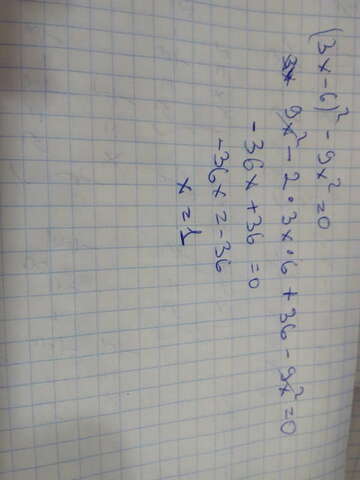 (3x-6)² - 9x² = 0
9x² - 2·3x·6 + 36 - 9x² = 0
-36x + 36 = 0
-36x = -36
x = 1